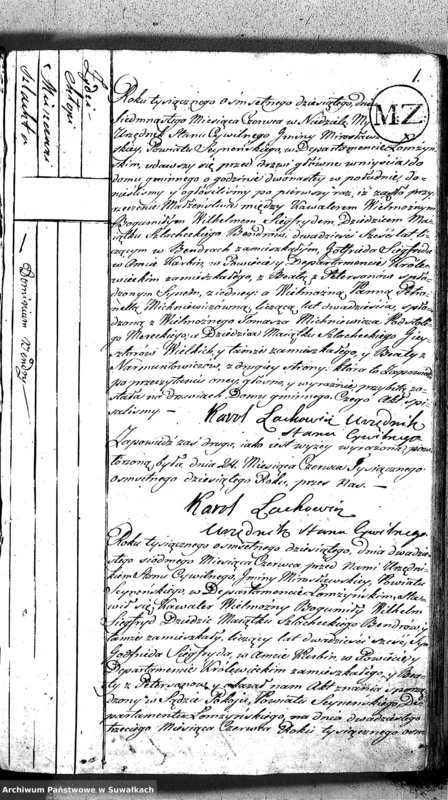 1.
MZ
Żydzi
Chłopi
Mieszczanie
Szlachta
Dominium Bendry
Roku tysiącznego osmsetnego dziesiątego, dnia
Siedmnastego Miesiąca Czerwca w Niedzielę My
Urzędnik Stanu Cywilnego Gminy
skiey, Powiatu Seyneńskiego w Departamencie Łomżyń-
skim, udawszy się przed drzwi główne wniyścia do
domu gminnego o godzinie dwunastey w południe, do-
nieśliśmy y ogłosiliśmy po pierwszy raz, iż zaszło przy-
rzeczenie Małżeństwa między Kawalerem Wielmożnym
Bogumiłem Wilhelmem Siegfrydem Dziedzicem Ma-
iątku Szlacheckiego Bendrów, dwadzieścia sześć lat li-
czącym w Bendrach zamieszkałym, Gotfrida Siegfryda
w Amcie w Powiecie y Departamencie Króle-
wieckim zamieszkałego, y Beaty z Petersonów spło-
dzonym Synem, z iedney: a Wielmożną Panną Petro-
nellą Michniewiczówną liczącą lat dwadzieścia, spło-
dzoną z Wielmożnego Tomasza Michniewicza Podstole-
go Mereckiego, Dziedzica Maiątku Szlacheckiego Giey-
sztarów Wielkich y tamże zamieszkałego, y Beaty z
Narmuntowiczów, z drugiey Strony. Która to Zapowiedź
po przeczytaniu oney głośno, y wyraźnie, przybita zo-
stała na drzwiach Domu gminnego. Czego Akt spi-
saliśmy. —
Karol Lachowicz Urzędnik
Stanu Cywilnego
Zapowiedź zaś druga, iako iest wyżey wyrażono, pow-
tórzona była dnia 24. Miesiąca Czerwca Tysiącznego
osmsetnego dziesiątego Roku, przez Nas. —
Karol Lachowicz
Urzędnik Stanu Cywilnego
Roku tysiącznego osmsetnego dziesiątego, dnia dwudzie-
stego siódmego Miesiąca Czerwca, przed Nami Urzędni-
kiem Stanu Cywilnego, Gminy Powiatu
Seyneńskiego, w Departamencie Łomżyńskim, Sta-
wił się Kawaler Wielmożny Bogumił Wilhelm
Siegfryd Dziedzic Maiątku Szlacheckiego Bendrów, y
tamże zamieszkały, liczący lat dwadzieścia sześć, Syn
Gotfrida Siegfryda, w Amcie w Powiecie y
Departamencie Królewieckim zamieszkałego, y Bea-
ty z Petersonów, okazał nam Akt znania sporzą-
dzony w Sądzie Pokoju, Powiatu Seyneńskiego De-
partamentu Łomżyńskiego, na dniu dwudziestego
trzeciego Miesiąca Czerwca Roku tysiącznego osm-
Archiwum Państwowe w Suwałkach